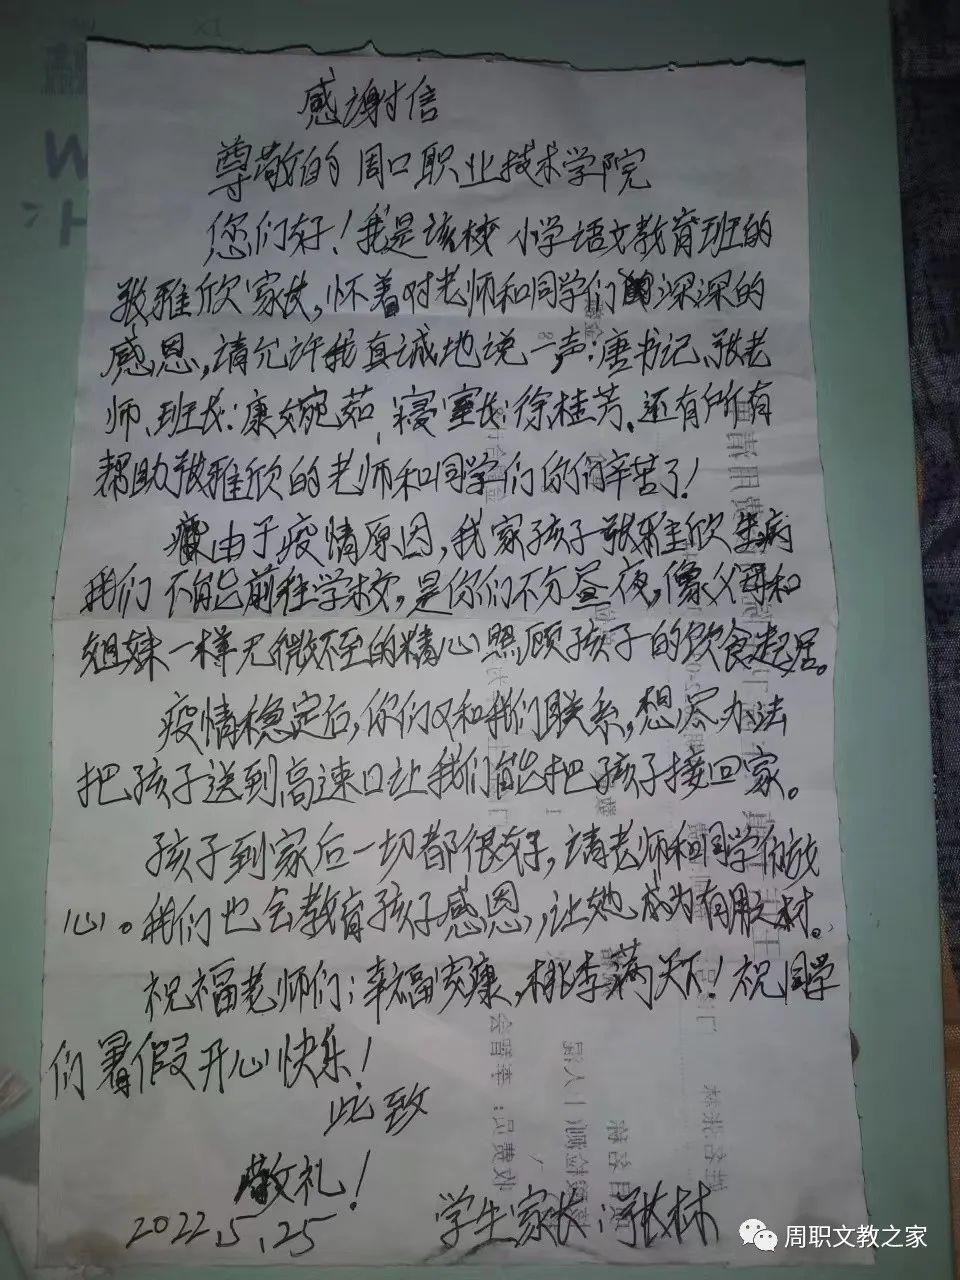 感谢信
尊敬的周口职业技术学院
您们好！我是该校小学语文教育班的
张雅欣家长，怀着对老师和同学们深深的
感恩，请允许我真诚地说一声：唐书记、张老
师、班长：康婉茹、寝室长：徐桂芳、还有所有
帮助张雅欣的老师和同学们你们辛苦了！
由于疫情原因，我家孩子张雅欣生病
我们不能前往学校，是你们不分昼夜，像父母和
姐妹一样无微不至的精心照顾孩子的饮食起居。
疫情稳定后，你们又和我们联系，想尽办法
把孩子送到高速口让我们能把孩子接回家。
孩子到家后一切都很好，请老师和同学们放
心。我们也会教育孩子感恩，让她成为有用之材。
祝福老师们：幸福安康，桃李满天下！祝同学
们暑假开心快乐！
此致
敬礼！
学生家长：张林
2022.5.25
周职文教之家